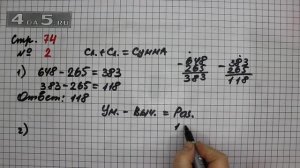 4 A O 5 . RU
Стр. 74
№ 2
Сл. + Сл. = Сумма
1) 648 - 265 = 383
383 - 265 = 118
Ответ: 118
- 648
265
383
- 383
265
118
Ум. - Выч. = Раз.
2)